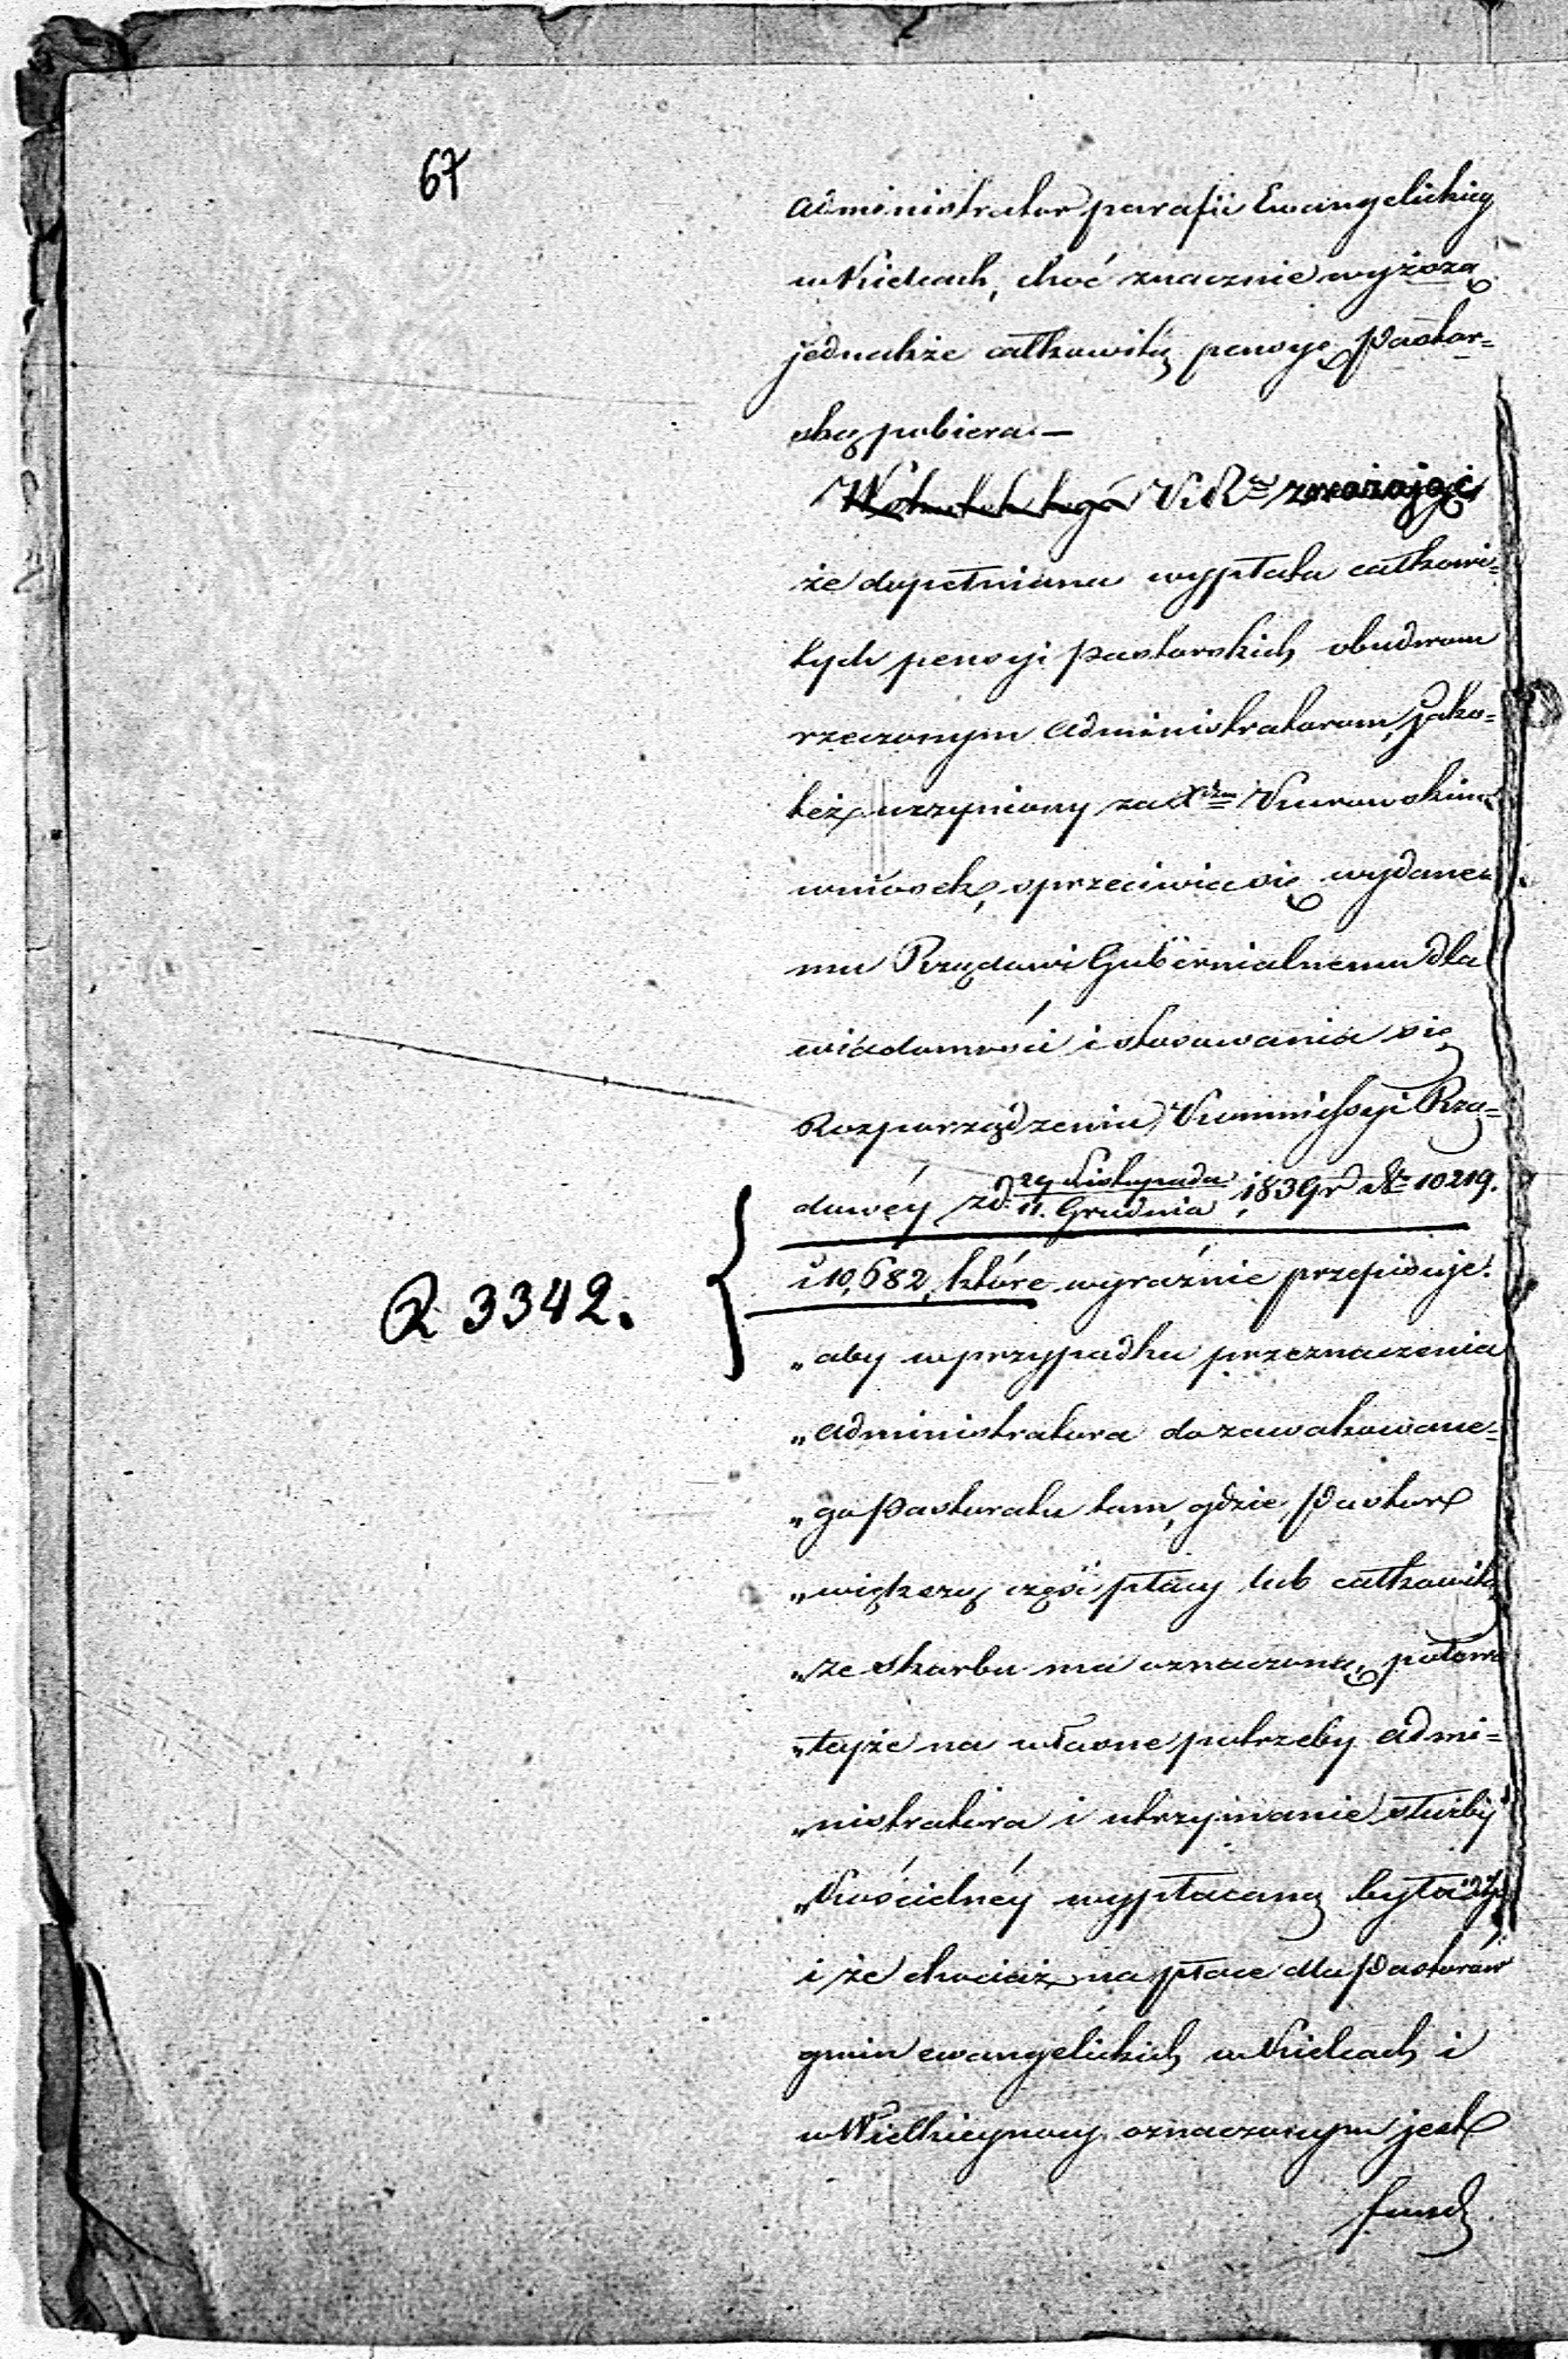 67
administrator parafii Ewangelickiey
w Kielcach, choć znacznie wyższą
jednakże całkowitą pensyę Pastor=
ską pobiera. —
W skutek tego K. R. zważając
że dopełniana wypłata całkowi=
tych pensyi pastorskich obudwom
rzeczonym administratorom, jako=
też uczyniony za Xdzem Kurowskim
wniosek, sprzeciwia się wydane=
mu Rządowi Gubernialnemu dla
wiadomości i stosowania się
Rozporządzeniu Kommissyi Rzą=
dowéy z d. 29 Listopada / 11. Grudnia 1839 r. Nr 10219.
i 10,682, które wyraźnie przepisuje.
R 3342.
„aby w przypadku przeznaczenia
„administratora do zawakowane=
„go Pastoratu tam, gdzie Pastor
„większą część płacy lub całkowitą
„ze skarbu ma oznaczoną, połowa
„tejże na własne potrzeby admi=
„nistratora i utrzymanie służby
„Kościelnéy wypłacaną była”
i że chociaż na płace dla Pastorów
gmin ewangelickich w Kielcach i
w Wielkieynocy oznaczonym jest
fund